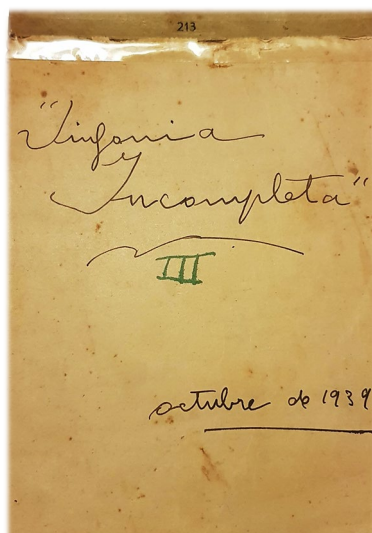 213
"Sinfonia
Incompleta"
III
octubre de 1939